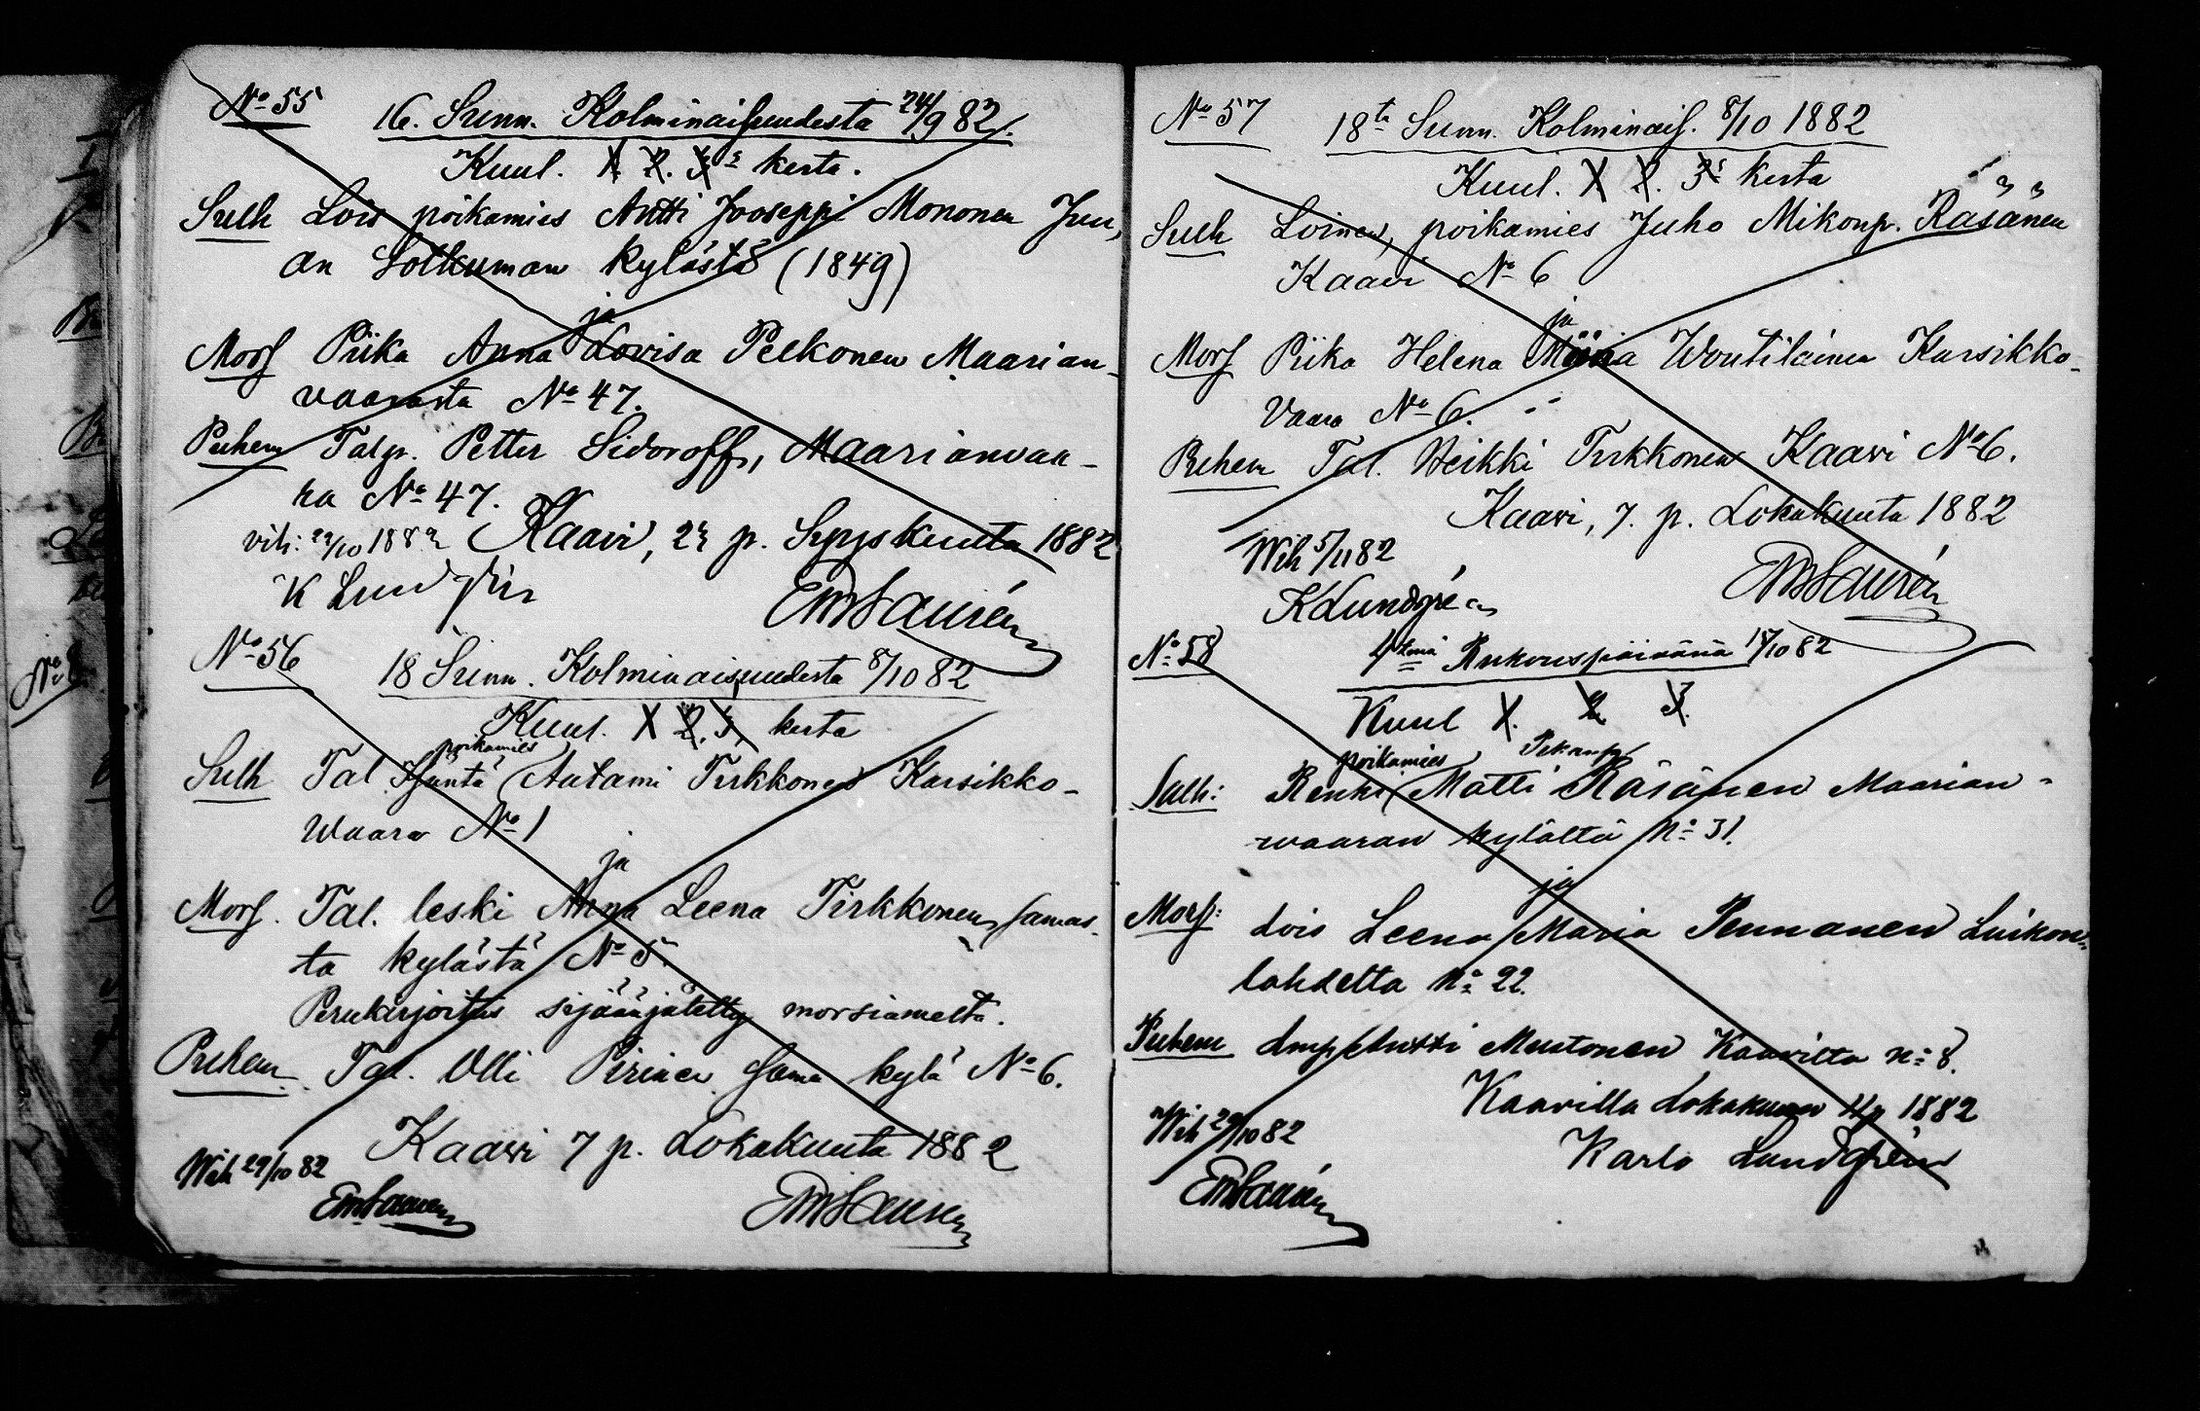 No 55
16. Sunn. Kolminaisuudesta 24/9 82.
Kuul. 1. 2. 3s kerta.
Sulh Lois poikamies Antti Jooseppi Mononen Juu,
an Polkuman kylästä (1849)
ja
Mors Piika Anna Lovisa Pelkonen Maarian-
vaarasta No 47.
Puhem Talp. Petter Sidoroff, Maarianvaa-
ra No 47.
vih: 22/10 1882 Kaavi, 23 p. Syyskuuta 1882
K Lundgrén
Em Laurén
No 56
18 Sunn. Kolminaisuudesta 8/10 82
Kuul. 1 2, 3, kerta
poikamies
Sulh Tal. Isäntä Aatami Tirkkonen Karsikko-
Waara No 1
ja
Mors. Tal. leski Anna Leena Tirkkonen samas-
ta kylästä No 5
Perukirjoitus sijäänjätetty morsiamelta.
Puhem. Tal. Olli Pirinen sama kylä No 6.
Kaavi 7 p. Lokakuuta 1882
Wih 29/10 82
Em Lauren
Em Lauren
No 57
18ta Sunn. Kolminais. 8/10 1882
Kuul. 1 2. 3s kerta
Sulh Loinen, poikamies Juho Mikonp. Räsänen
Kaavi No 6
ja
Mors Piika Helena Miina Woutilainen Karsikko-
Vaara No 6.
Puhem Tal. Heikki Tirkkonen Kaavi No 6.
Kaavi, 7. p. Lokakuuta 1882
Wih 5/11 82
K Lundgrén
Em Laurén
No 58
4tenä Rukouspäivänä 15/10 82
Kuul 1. 2 3.
poikamies Pekanp.
Sulh: Renki Matti Räsänen Maarian-
waaran kylältä No 31.
ja
Mors: Lois Leena Maria Pennanen Luikon-
lahdelta No 22.
Puhem Lmp Antti Mustonen Kaavilta No 8.
Kaavilla Lokakuun 1882
Wih 29/10 82
Karlo Lundgrén
Em Laurén